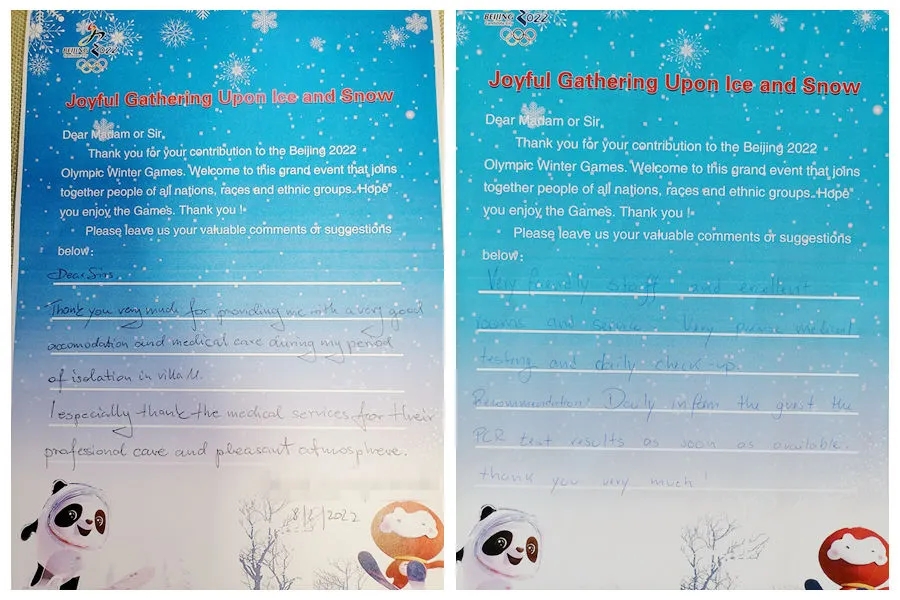 BEIJING 2022
Joyful Gathering Upon Ice and Snow
Dear Madam or Sir,
Thank you for your contribution to the Beijing 2022
Olympic Winter Games. Welcome to this grand event that joins
together people of all nations, races and ethnic groups. Hope
you enjoy the Games. Thank you !
Please leave us your valuable comments or suggestions
below:
Dear Sirs,
Thank you very much for providing me with a very good
accomodation and medical care during my period
of isolation in villa 11.
I especially thank the medical services for their
professional care and pleasant atmosphere.
8/2/2022
BEIJING 2022
Joyful Gathering Upon Ice and Snow
Dear Madam or Sir,
Thank you for your contribution to the Beijing 2022
Olympic Winter Games. Welcome to this grand event that joins
together people of all nations, races and ethnic groups. Hope
you enjoy the Games. Thank you !
Please leave us your valuable comments or suggestions
below:
Very friendly staff and excellent
rooms and service. Very medical
testing and daily check-up.
Recommendation! Daily inform the guest the
PCR test results as soon as available.
thank you very much!